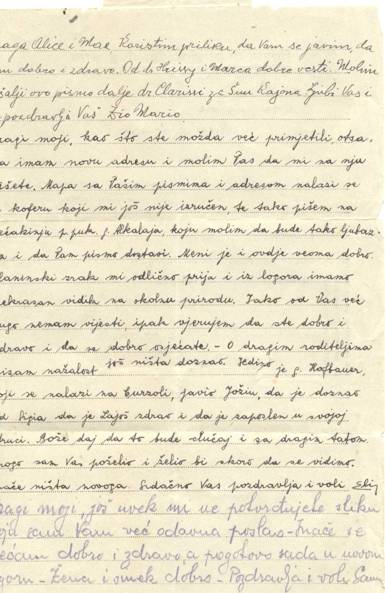 raga Alice i Mac Koristim priliku, da Vam se javim, da
m dobro i zdravo. Od dr Henry i Marca dobre vesti. Molim
šalji ovo pismo dalje dr Clarini zc Ljubi Vas i
pozdravlja Vaš Dio Mario.
ragi moji, kao što ste možda već primjetili, otsa.
a imam novu adresu i molim Vas da mi na nju
išete. Mapa sa Vašim pismima i adresom nalazi se
koferu koji mi još nije izručen, te tako pišem na
ećakinju p. puk. g. Alkalaja, koju molim da bude tako ljubaz.
a i da Vam pismo dostavi. Meni je i ovdje veoma dobro.
laninski zrak mi odlično prija i iz logora imamo
rekrasan vidik na okolnu prirodu. Iako od Vas već
ugo nemam vijesti, ipak vjerujem da ste dobro i
dravo i da se dobro osjećate. - O dragim roditeljima
isam nažalost još ništa doznao. Jedino je g. Hoftauer,
oji se nalazi na Curzoli, javio Jožiu, da je doznao
d lipia da je Lajoš zdrav i da je zaposlen u svojoj
truci. Bože daj da to bude slučaj i sa dragim tatom.
nogo sam Vas poželio i želio bi skoro da se vidimo.
nače ništa novoga. Srdačno Vas pozdravlja i voli
ragi moji, još uvek mi ne potvrdujete sliku
oja sam Vam već odavna poslao - Inače se
ećam dobro i zdravo, a pogotovo sada u novom
ogoru - Žena i sinek dobro - Pozdravlja i voli